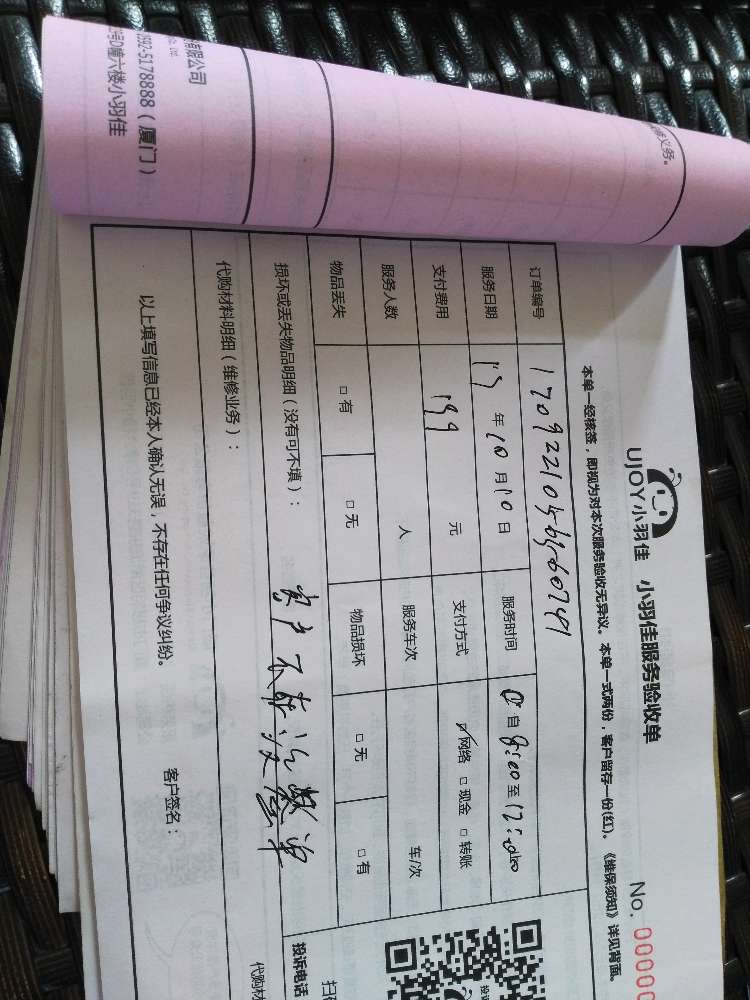 有限公司
592-5178888（厦门）
2号D幢六楼小羽佳
修义务。
UJOY小羽佳 小羽佳服务验收单
No. 00000
本单一经核签，即视为对本次服务验收无异议。本单一式两份，客户留存一份(红)。《维保须知》详见背面。
订单编号
服务日期 年10月10日 服务时间 自8:00至12:00
支付费用 199 元 支付方式 ☑网络 □现金 □转账
服务人数 人 服务车次 车/次
物品丢失 □有 □无 物品损坏 □无 □有
损坏或丢失物品明细（没有可不填）：
客户不在
代购材料明细（维修业务）：
以上填写信息已经本人确认无误，不存在任何争议纠纷。 客户签名：
投诉电话
代购材